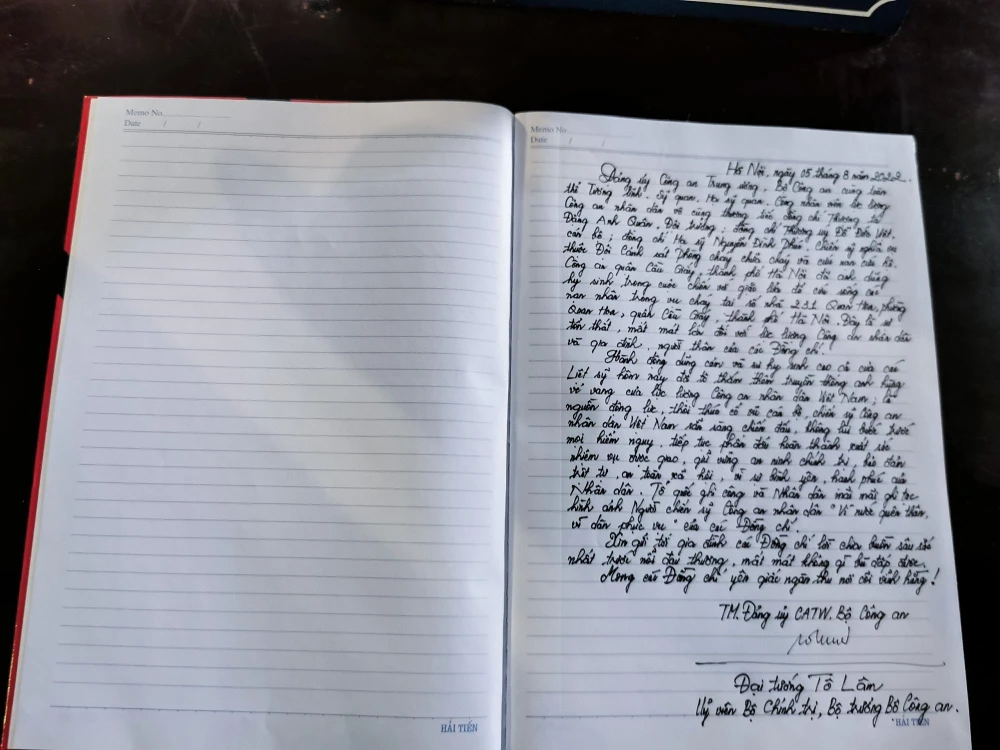 Memo No.
Date / /
HẢI TIẾN
Memo No.
Date / /
Hà Nội, ngày 05 tháng 8 năm 2022.
Đảng ủy Công an Trung ương, Bộ Công an cùng toàn
thể Tướng lĩnh, Sỹ quan, Hạ sỹ quan, Công nhân viên lực lượng
Công an nhân dân vô cùng thương tiếc đồng chí Thượng tá
Đặng Anh Quân, Đội trưởng; đồng chí Thượng úy Đỗ Đức Việt,
cán bộ; đồng chí Hạ sỹ Nguyễn Đình Phúc, chiến sỹ nghĩa vụ
thuộc Đội Cảnh sát Phòng cháy chữa cháy và cứu nạn cứu hộ,
Công an quận Cầu Giấy, thành phố Hà Nội đã anh dũng
hy sinh trong cuộc chiến với giặc lửa để cứu sống các
nạn nhân trong vụ cháy tại số nhà 231 Quan Hoa, phường
Quan Hoa, quận Cầu Giấy, thành phố Hà Nội. Đây là sự
tổn thất, mất mát lớn đối với lực lượng Công an nhân dân
và gia đình, người thân của các Đồng chí.
Hành động dũng cảm và sự hy sinh cao cả của các
Liệt sỹ hôm nay đã tô thắm thêm truyền thống anh hùng
vẻ vang của lực lượng Công an nhân dân Việt Nam; là
nguồn động lực, thôi thúc cổ vũ cán bộ, chiến sỹ Công an
nhân dân Việt Nam sẵn sàng chiến đấu, không lùi bước trước
mọi hiểm nguy, tiếp tục phấn đấu hoàn thành xuất sắc
nhiệm vụ được giao, giữ vững an ninh chính trị, bảo đảm
trật tự, an toàn xã hội, vì sự bình yên, hạnh phúc của
Nhân dân. Tổ quốc ghi công và Nhân dân mãi mãi ghi tạc
hình ảnh Người chiến sỹ Công an nhân dân "Vì nước quên thân,
vì dân phục vụ" của các Đồng chí.
Xin gửi tới gia đình các Đồng chí lời chia buồn sâu sắc
nhất trước nỗi đau thương, mất mát không gì bù đắp được.
Mong các Đồng chí yên giấc ngàn thu nơi cõi vĩnh hằng!
TM. Đảng uỷ CATW. Bộ Công an
Đại tướng Tô Lâm
Uỷ viên Bộ Chính trị, Bộ trưởng Bộ Công an.
HẢI TIẾN